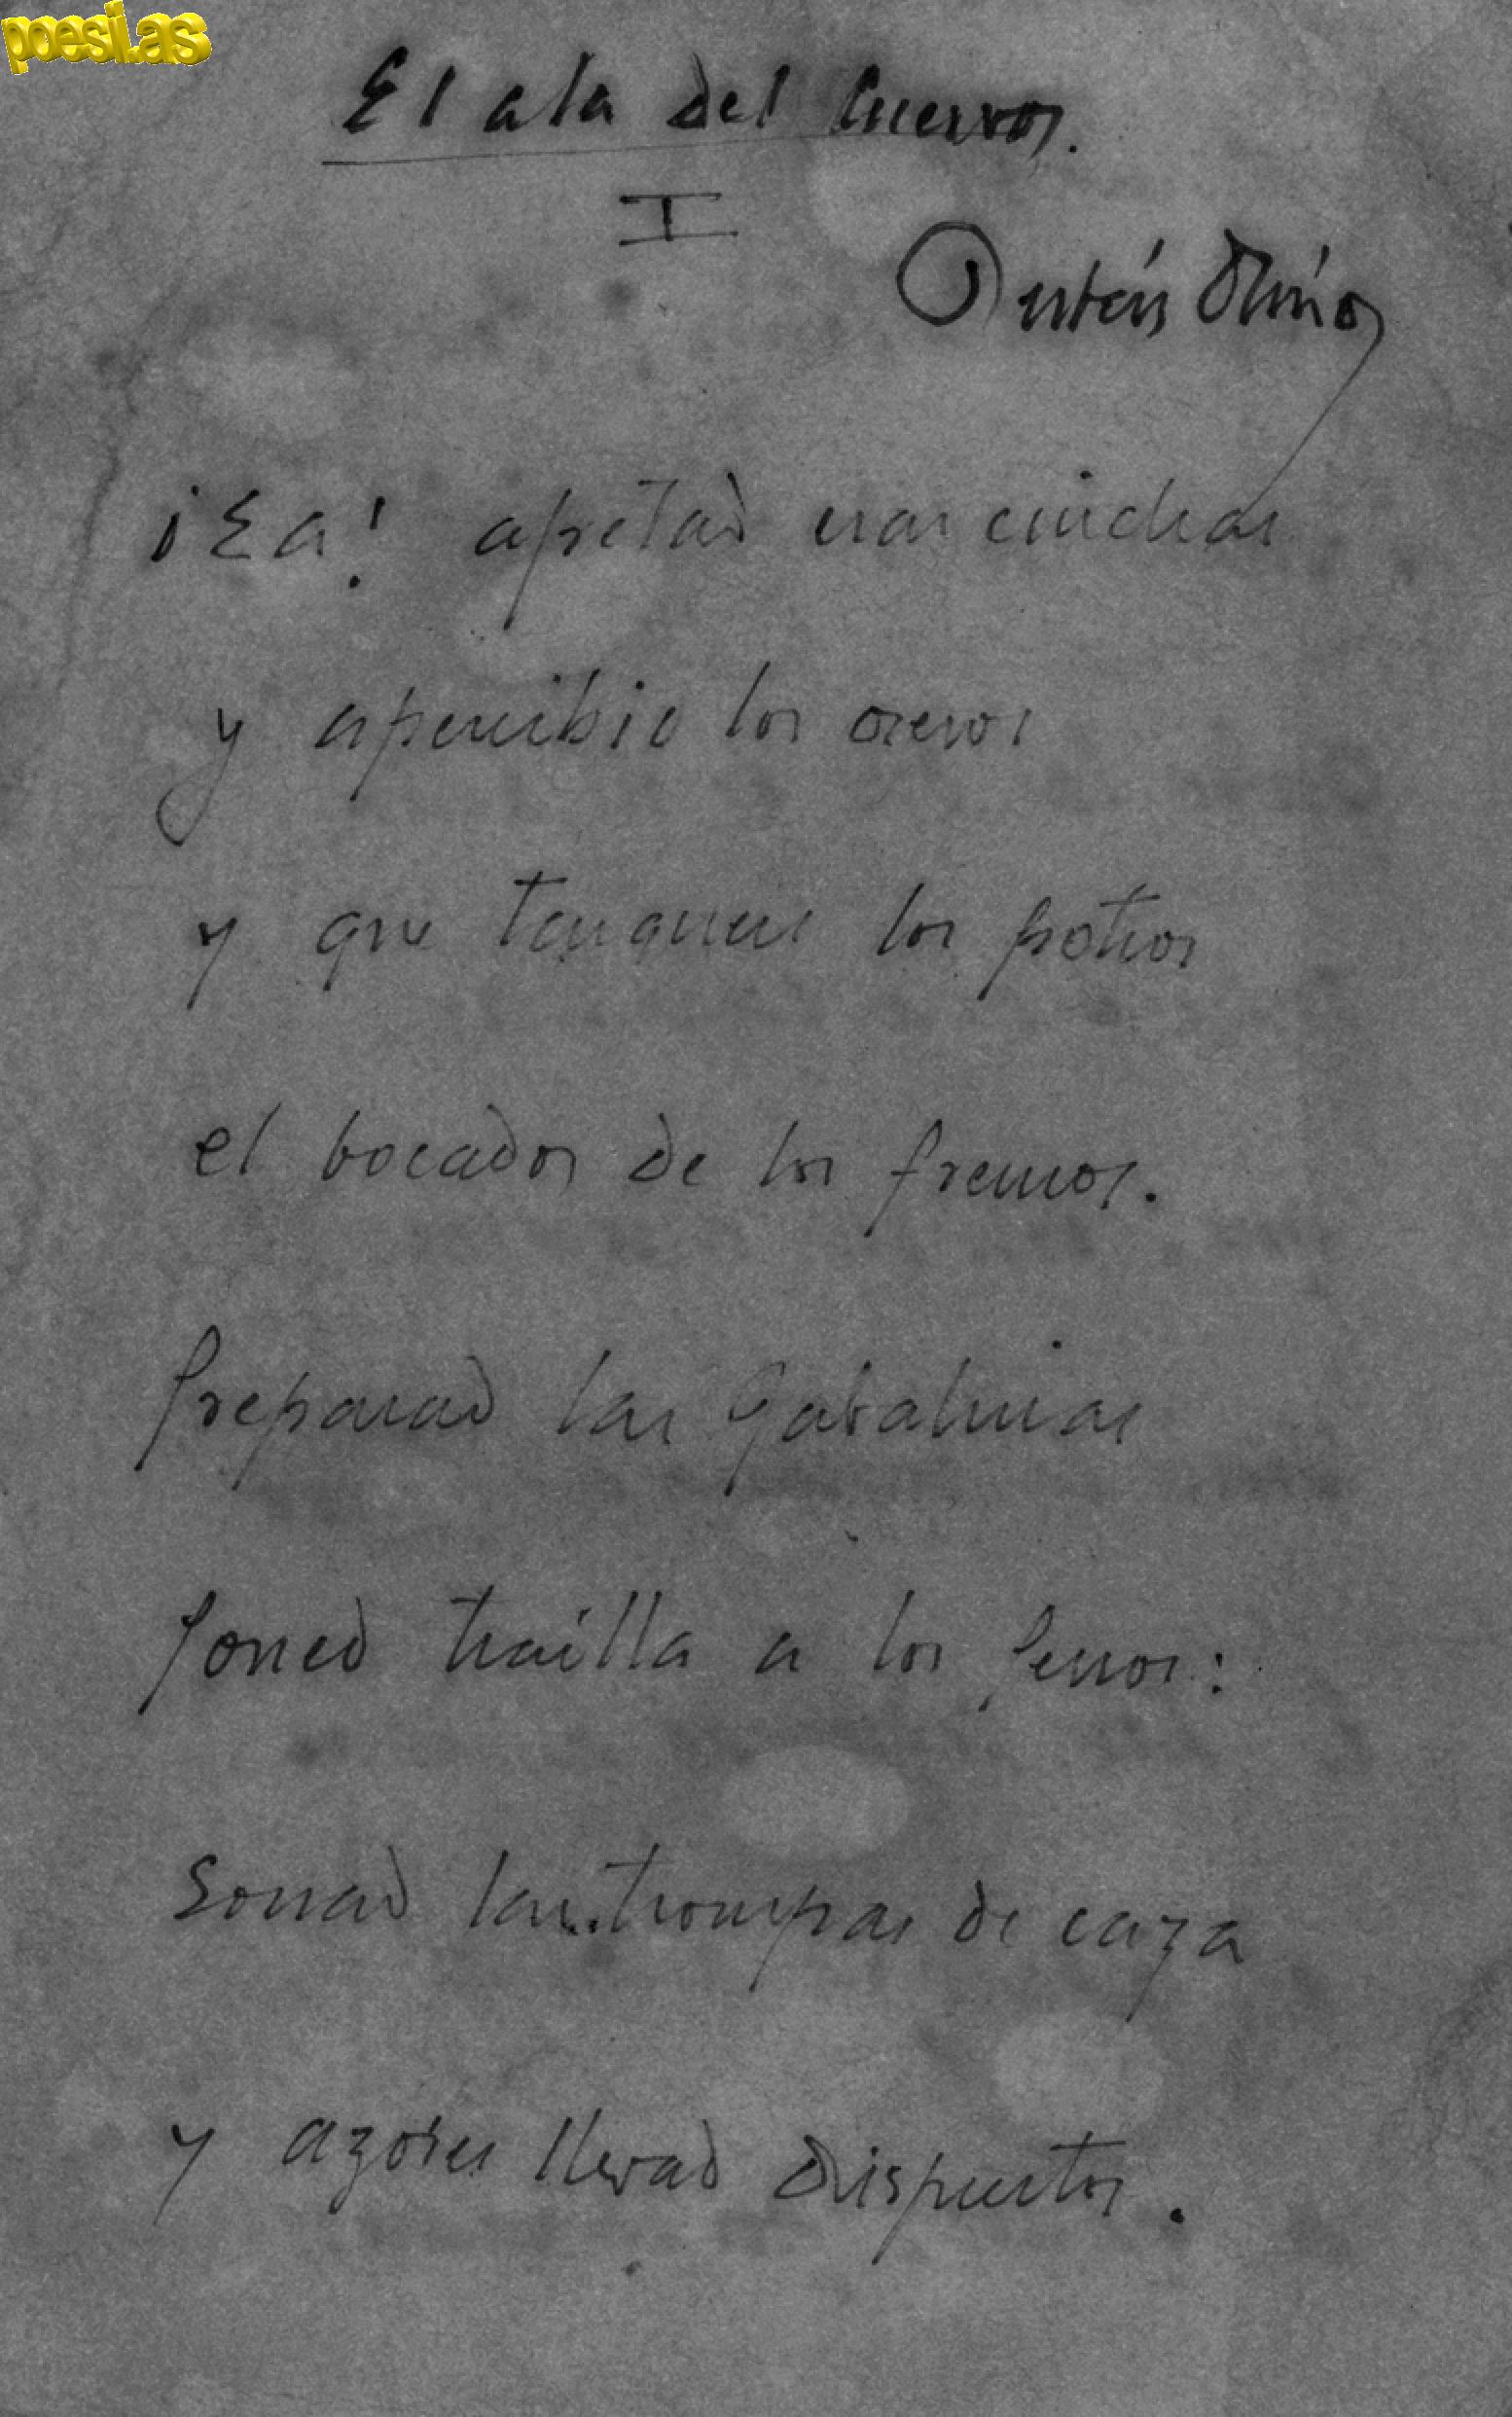 poesi.as
El ala del Cuervo.
I
¡Ea! apretad esas cinchas
y apercibid los
y que tasquen los potros
el bocado de los frenos.
Preparad las jabalinas
poned trailla a los perros:
sonad las trompas de caza
y azores llevad dispuestos.